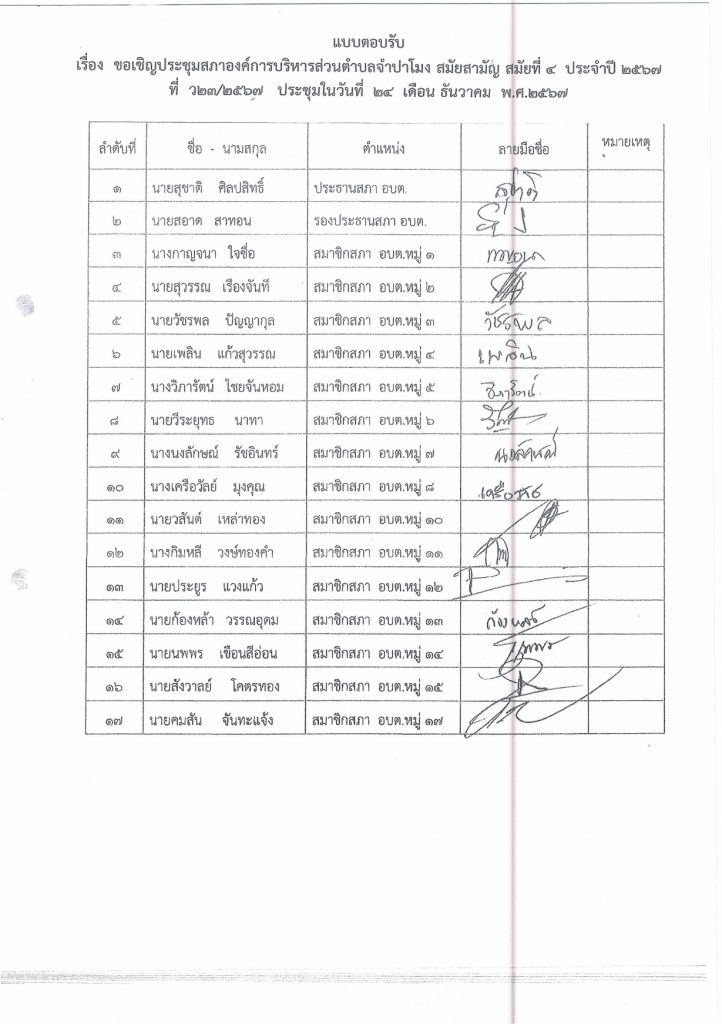 แบบตอบรับ
เรื่อง ขอเชิญประชุมสภาองค์การบริหารส่วนตำบลจำปาโมง สมัยสามัญ สมัยที่ ๔ ประจำปี ๒๕๖๗
ที่ ว๒๓/๒๕๖๗ ประชุมในวันที่ ๒๔ เดือน ธันวาคม พ.ศ.๒๕๖๗
ลำดับที่ ชื่อ - นามสกุล ตำแหน่ง ลายมือชื่อ หมายเหตุ
๑ นายสุชาติ ศิลปสิทธิ์ ประธานสภา อบต. สุชาติ
๒ นายสอาด สาทอน รองประธานสภา อบต.
๓ นางกาญจนา ใจซื่อ สมาชิกสภา อบต.หมู่ ๑ กาญจนา
๔ นายสุวรรณ เรืองจันที สมาชิกสภา อบต.หมู่ ๒
๕ นายวัชรพล ปัญญากุล สมาชิกสภา อบต.หมู่ ๓ วัชรพล
๖ นายเพลิน แก้วสุวรรณ สมาชิกสภา อบต.หมู่ ๔ เพลิน
๗ นางวิภารัตน์ ไชยจันหอม สมาชิกสภา อบต.หมู่ ๕ วิภารัตน์
๘ นายวีระยุทธ นาทา สมาชิกสภา อบต.หมู่ ๖
๙ นางนงลักษณ์ รัชอินทร์ สมาชิกสภา อบต.หมู่ ๗ นงลักษณ์
๑๐ นางเครือวัลย์ มุงคุณ สมาชิกสภา อบต.หมู่ ๘ เครือวัลย์
๑๑ นายวสันต์ เหล่าทอง สมาชิกสภา อบต.หมู่ ๑๐
๑๒ นางกิมหลี วงษ์ทองคำ สมาชิกสภา อบต.หมู่ ๑๑
๑๓ นายประยูร แวงแก้ว สมาชิกสภา อบต.หมู่ ๑๒
๑๔ นายก้องหล้า วรรณอุดม สมาชิกสภา อบต.หมู่ ๑๓ ก้องหล้า
๑๕ นายนพพร เขือนสีอ่อน สมาชิกสภา อบต.หมู่ ๑๔ นพพร
๑๖ นายสังวาลย์ โคตรทอง สมาชิกสภา อบต.หมู่ ๑๕
๑๗ นายคมสัน จันทะแจ้ง สมาชิกสภา อบต.หมู่ ๑๗